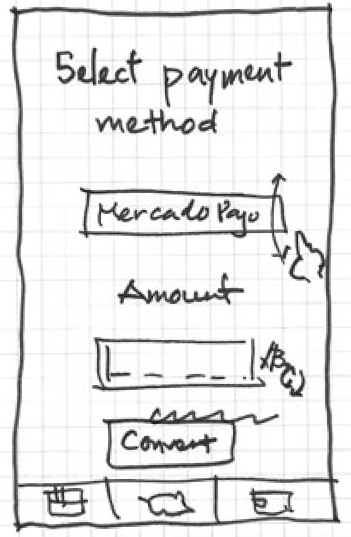 Select payment
method
Mercado Pago
Amount
Convert